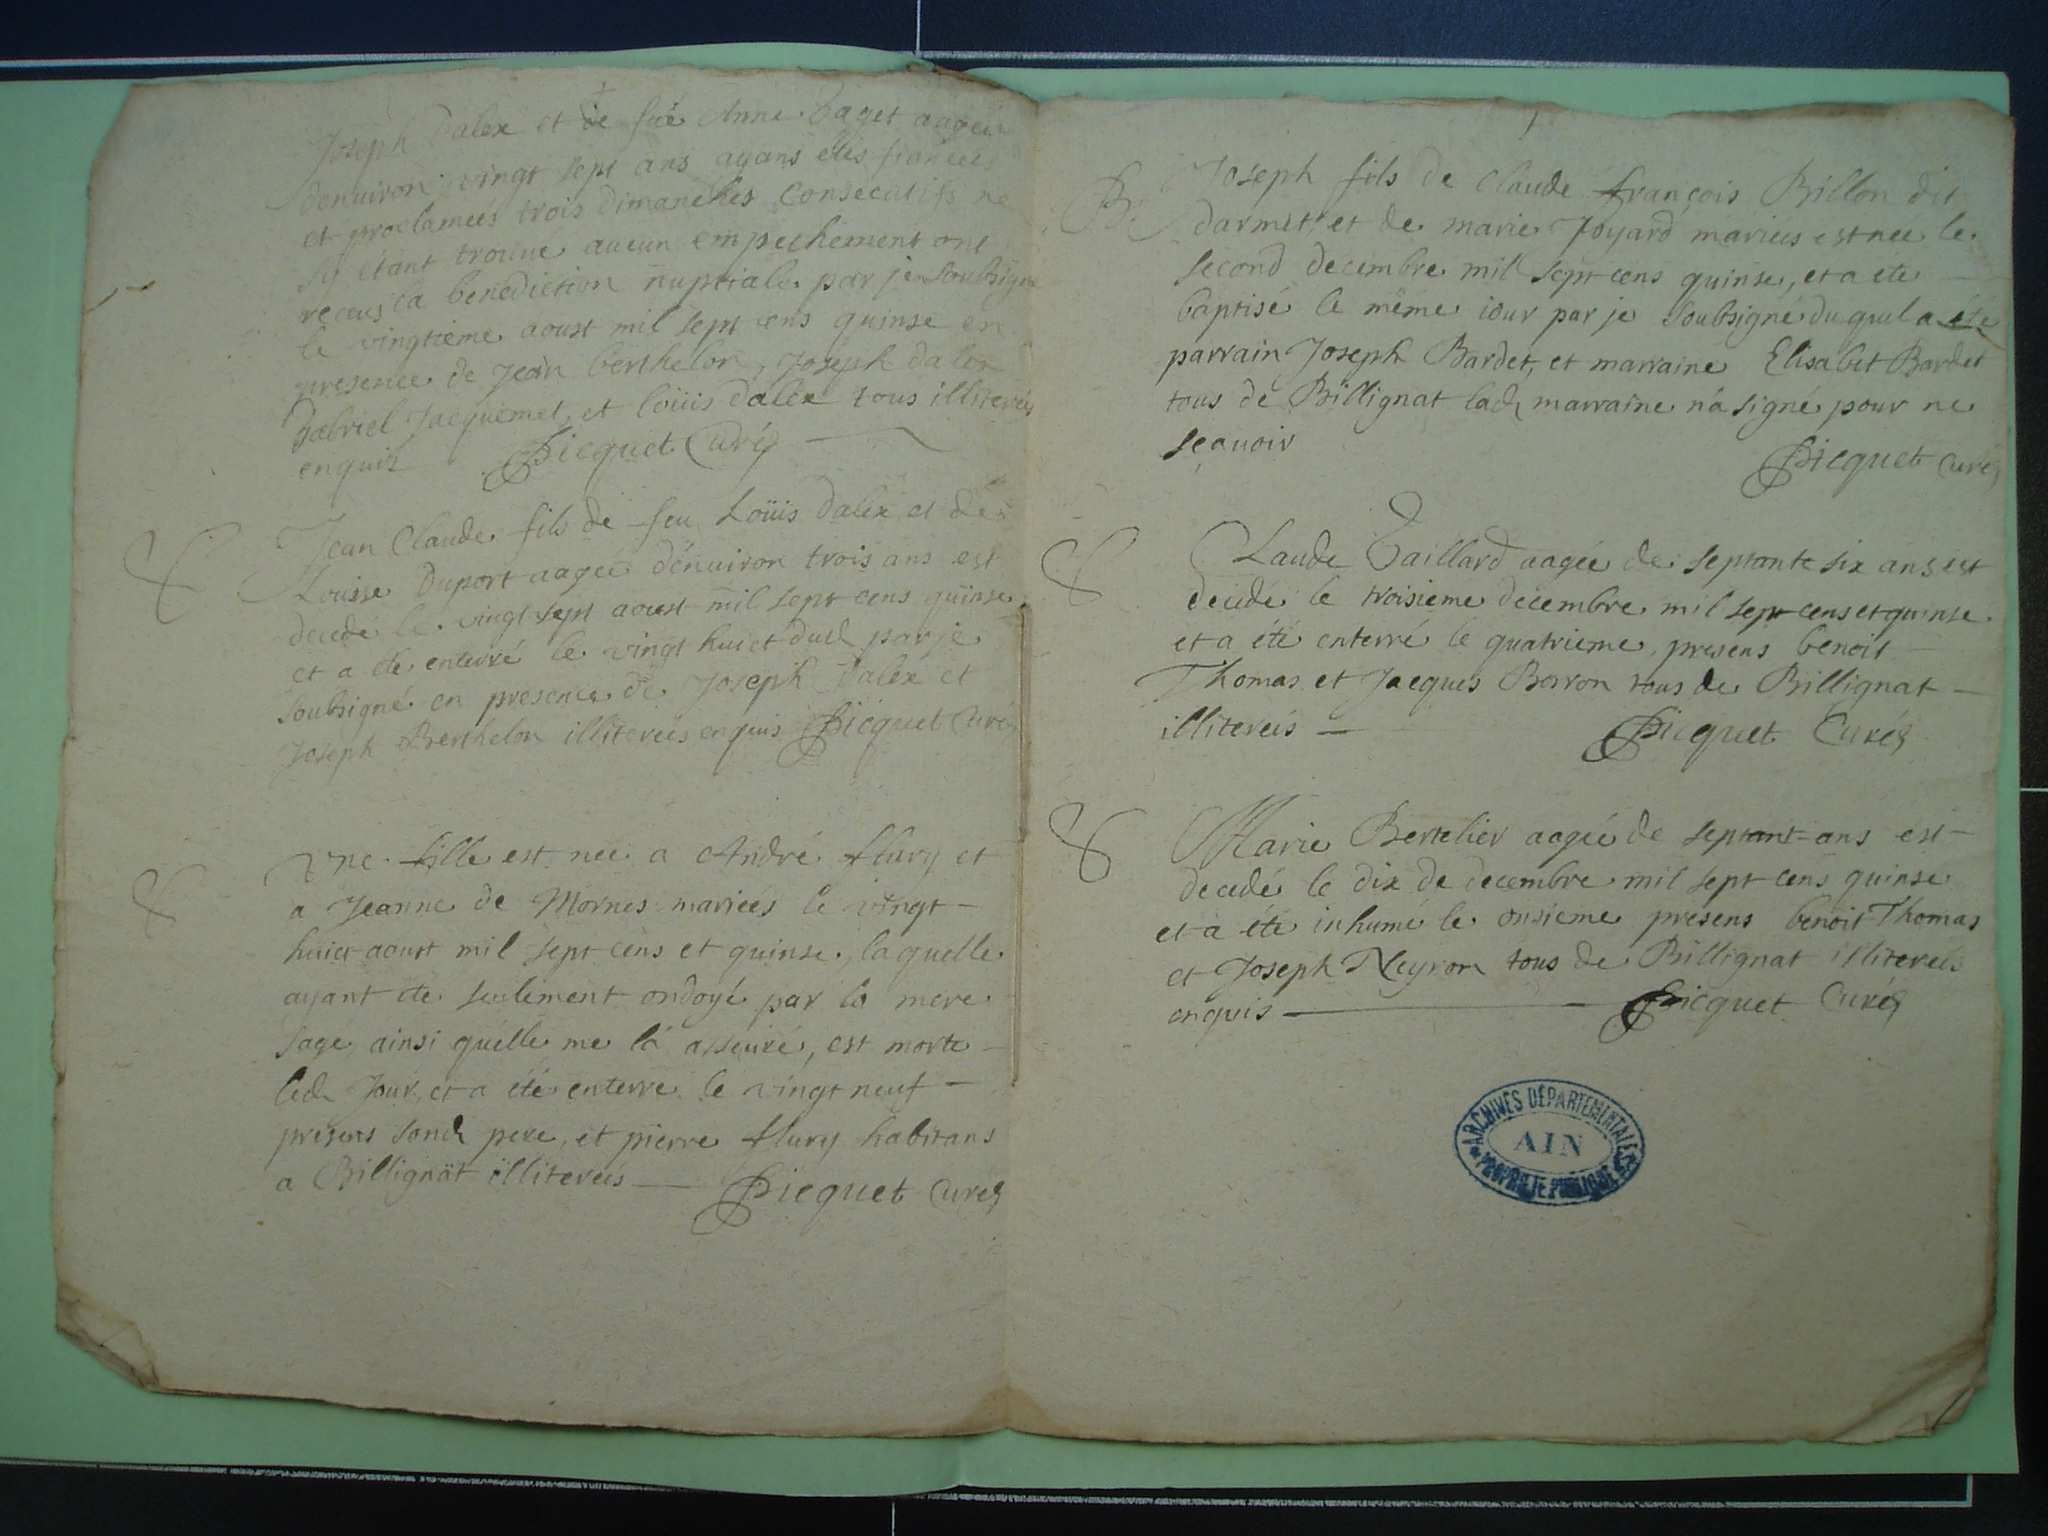 Joseph Dalex et de fuë Anne aagée
denuiron vingt sept ans ayans étés fiancées
et proclameés trois dimanches consecutifs ne
sy étant trouué aucun empechement ont
receus la benediction nuptiale par je soubsigné
le vingtieme aoust mil sept cens quinse en
presence de Jean berthelon, Joseph dalex
Gabriel Jacquemet, et loüis dalex tous illitereés
enquis Picquet Curé
Jean Claude fils de feu Loüis Dalex et de
Louise Duport aageé denuiron trois ans est
decedé le vingt sept aoust mil sept cens quinse
et a été enterré le vingt huict dud par je
soubsigné en presence de Joseph Dalex et
Joseph Berthelon illitereés enquis Picquet Curé
Une fille est neé a André flury et
a Jeanne de Mornes marieés le vingt
huict aoust mil sept cens et quinse, laquelle
ayant été seulement ondoyé par la mere
sage ainsi quelle me la asseuré, est morte
led Jour, et a été enterré le vingt neuf
presens sond pere, et pierre flury habitans
a Billignat illitereés Picquet Curé
B Joseph fils de Claude françois Billon dit
darmet, et de marie Joyard marieés est neé le
second decembre mil sept cens quinse, et a eté
baptisé le même iour par je soubsigné duquel a été
parrain Joseph Bardet, et marraine Elisabet Bardet
tous de Billignat lad marraine n'a signé pour ne
sçauoir
Picquet Curé
Claude Taillard aageé de septante six ans est
decedé le troisieme decembre mil sept cens et quinse
et a été enterré le quatrieme, presens benoit
Thomas et Jacques Borron tous de Billignat
illitereés Picquet Curé
Marie Bertelier aageé de septant ans est
decedé le dix de decembre mil sept cens quinse
et a été inhumé le onsieme presens benoit Thomas
et Joseph Neyron tous de Billignat illitereés
enquis Picquet Curé
ARCHIVES DÉPARTEMENTALES
AIN
PROPRIÉTÉ PUBLIQUE